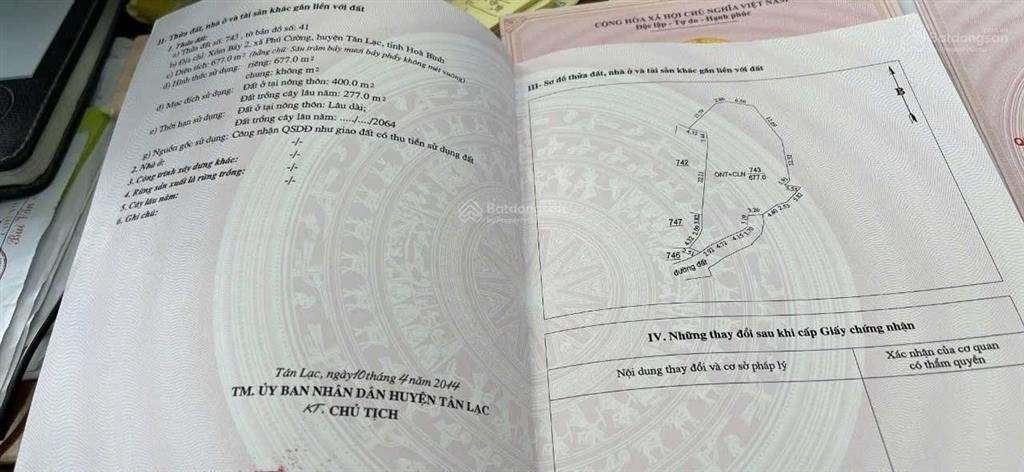 II- Thửa đất, nhà ở và tài sản khác gắn liền với đất
1. Thửa đất:
a) Thửa đất số: 743 , tờ bản đồ số: 41
b) Địa chỉ: Xóm Bảy 2, xã Phú Cường, huyện Tân Lạc, tỉnh Hoà Bình
c) Diện tích: 677.0 m² (bằng chữ: Sáu trăm bảy mươi bảy phẩy không mét vuông)
d) Hình thức sử dụng: riêng: 677.0 m²
chung: không m²
đ) Mục đích sử dụng: Đất ở tại nông thôn: 400.0 m²
Đất trồng cây lâu năm: 277.0 m²
e) Thời hạn sử dụng: Đất ở tại nông thôn: Lâu dài;
Đất trồng cây lâu năm: ..../..../2064
g) Nguồn gốc sử dụng: Công nhận QSDĐ như giao đất có thu tiền sử dụng đất
2. Nhà ở: -/-
3. Công trình xây dựng khác: -/-
4. Rừng sản xuất là rừng trồng: -/-
5. Cây lâu năm: -/-
6. Ghi chú:
Tân Lạc, ngày 10 tháng 4 năm 2014
TM. ỦY BAN NHÂN DÂN HUYỆN TÂN LẠC
KT. CHỦ TỊCH
CỘNG HÒA XÃ HỘI CHỦ NGHĨA VIỆT NAM
Độc lập - Tự do - Hạnh phúc
III- Sơ đồ thửa đất, nhà ở và tài sản khác gắn liền với đất
B
742
ONT+CLN 743
677.0
747
746
đường đất
2.92 4.72 4.15 3.70
4.80 2.53 5.82
3.26
4.32
22.11
IV. Những thay đổi sau khi cấp Giấy chứng nhận
Nội dung thay đổi và cơ sở pháp lý
Xác nhận của cơ quan
có thẩm quyền
Batdongsan
Batdongsan